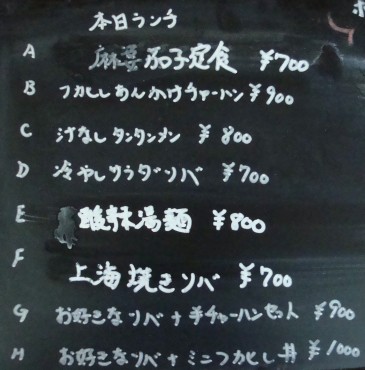 本日ランチ
A 麻婆茄子定食 ¥700
B フカヒレあんかけチャーハン ¥900
C 汁なしタンタンメン ¥800
D 冷やしサラダソバ ¥700
E 酸辣湯麺 ¥800
F 上海焼きソバ ¥700
G お好きなソバ+半チャーハンセット ¥900
H お好きなソバ+ミニフカヒレ丼 ¥1000